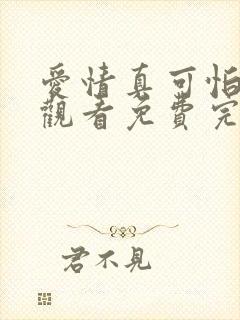 愛情真可怕
觀看免費完
君不見